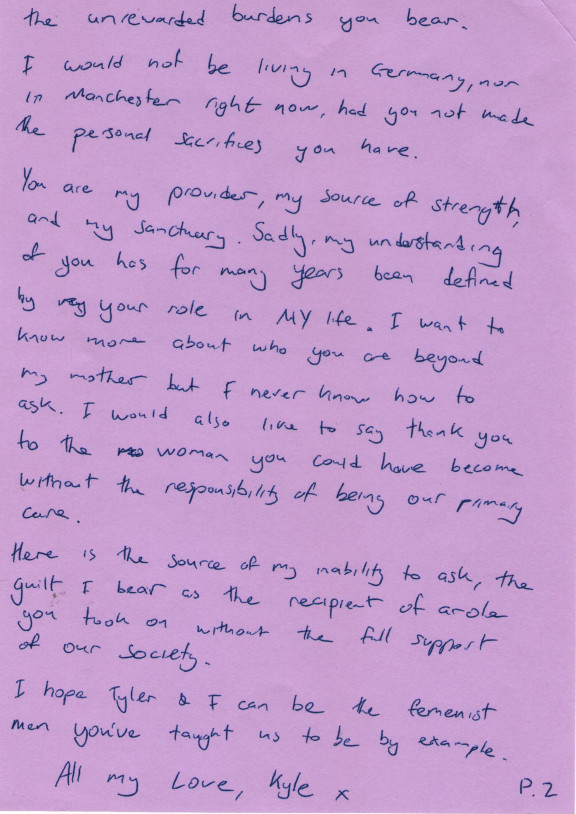 the unrewarded burdens you bear.
I would not be living in Germany, nor
in Manchester right now, had you not made
the personal sacrifices you have.
You are my provider, my source of strength,
and my sanctuary. Sadly, my understanding
of you has for many years been defined
by your role in MY life. I want to
know more about who you are beyond
my mother but I never know how to
ask. I would also like to say thank you
to the woman you could have become
without the responsibility of being our primary
care.
Here is the source of my inability to ask, the
guilt I bear as the recipient of a role
you took on without the full support
of our society.
I hope Tyler & I can be the femenist
men you've taught us to be by example.
All my Love, Kyle x
P. 2